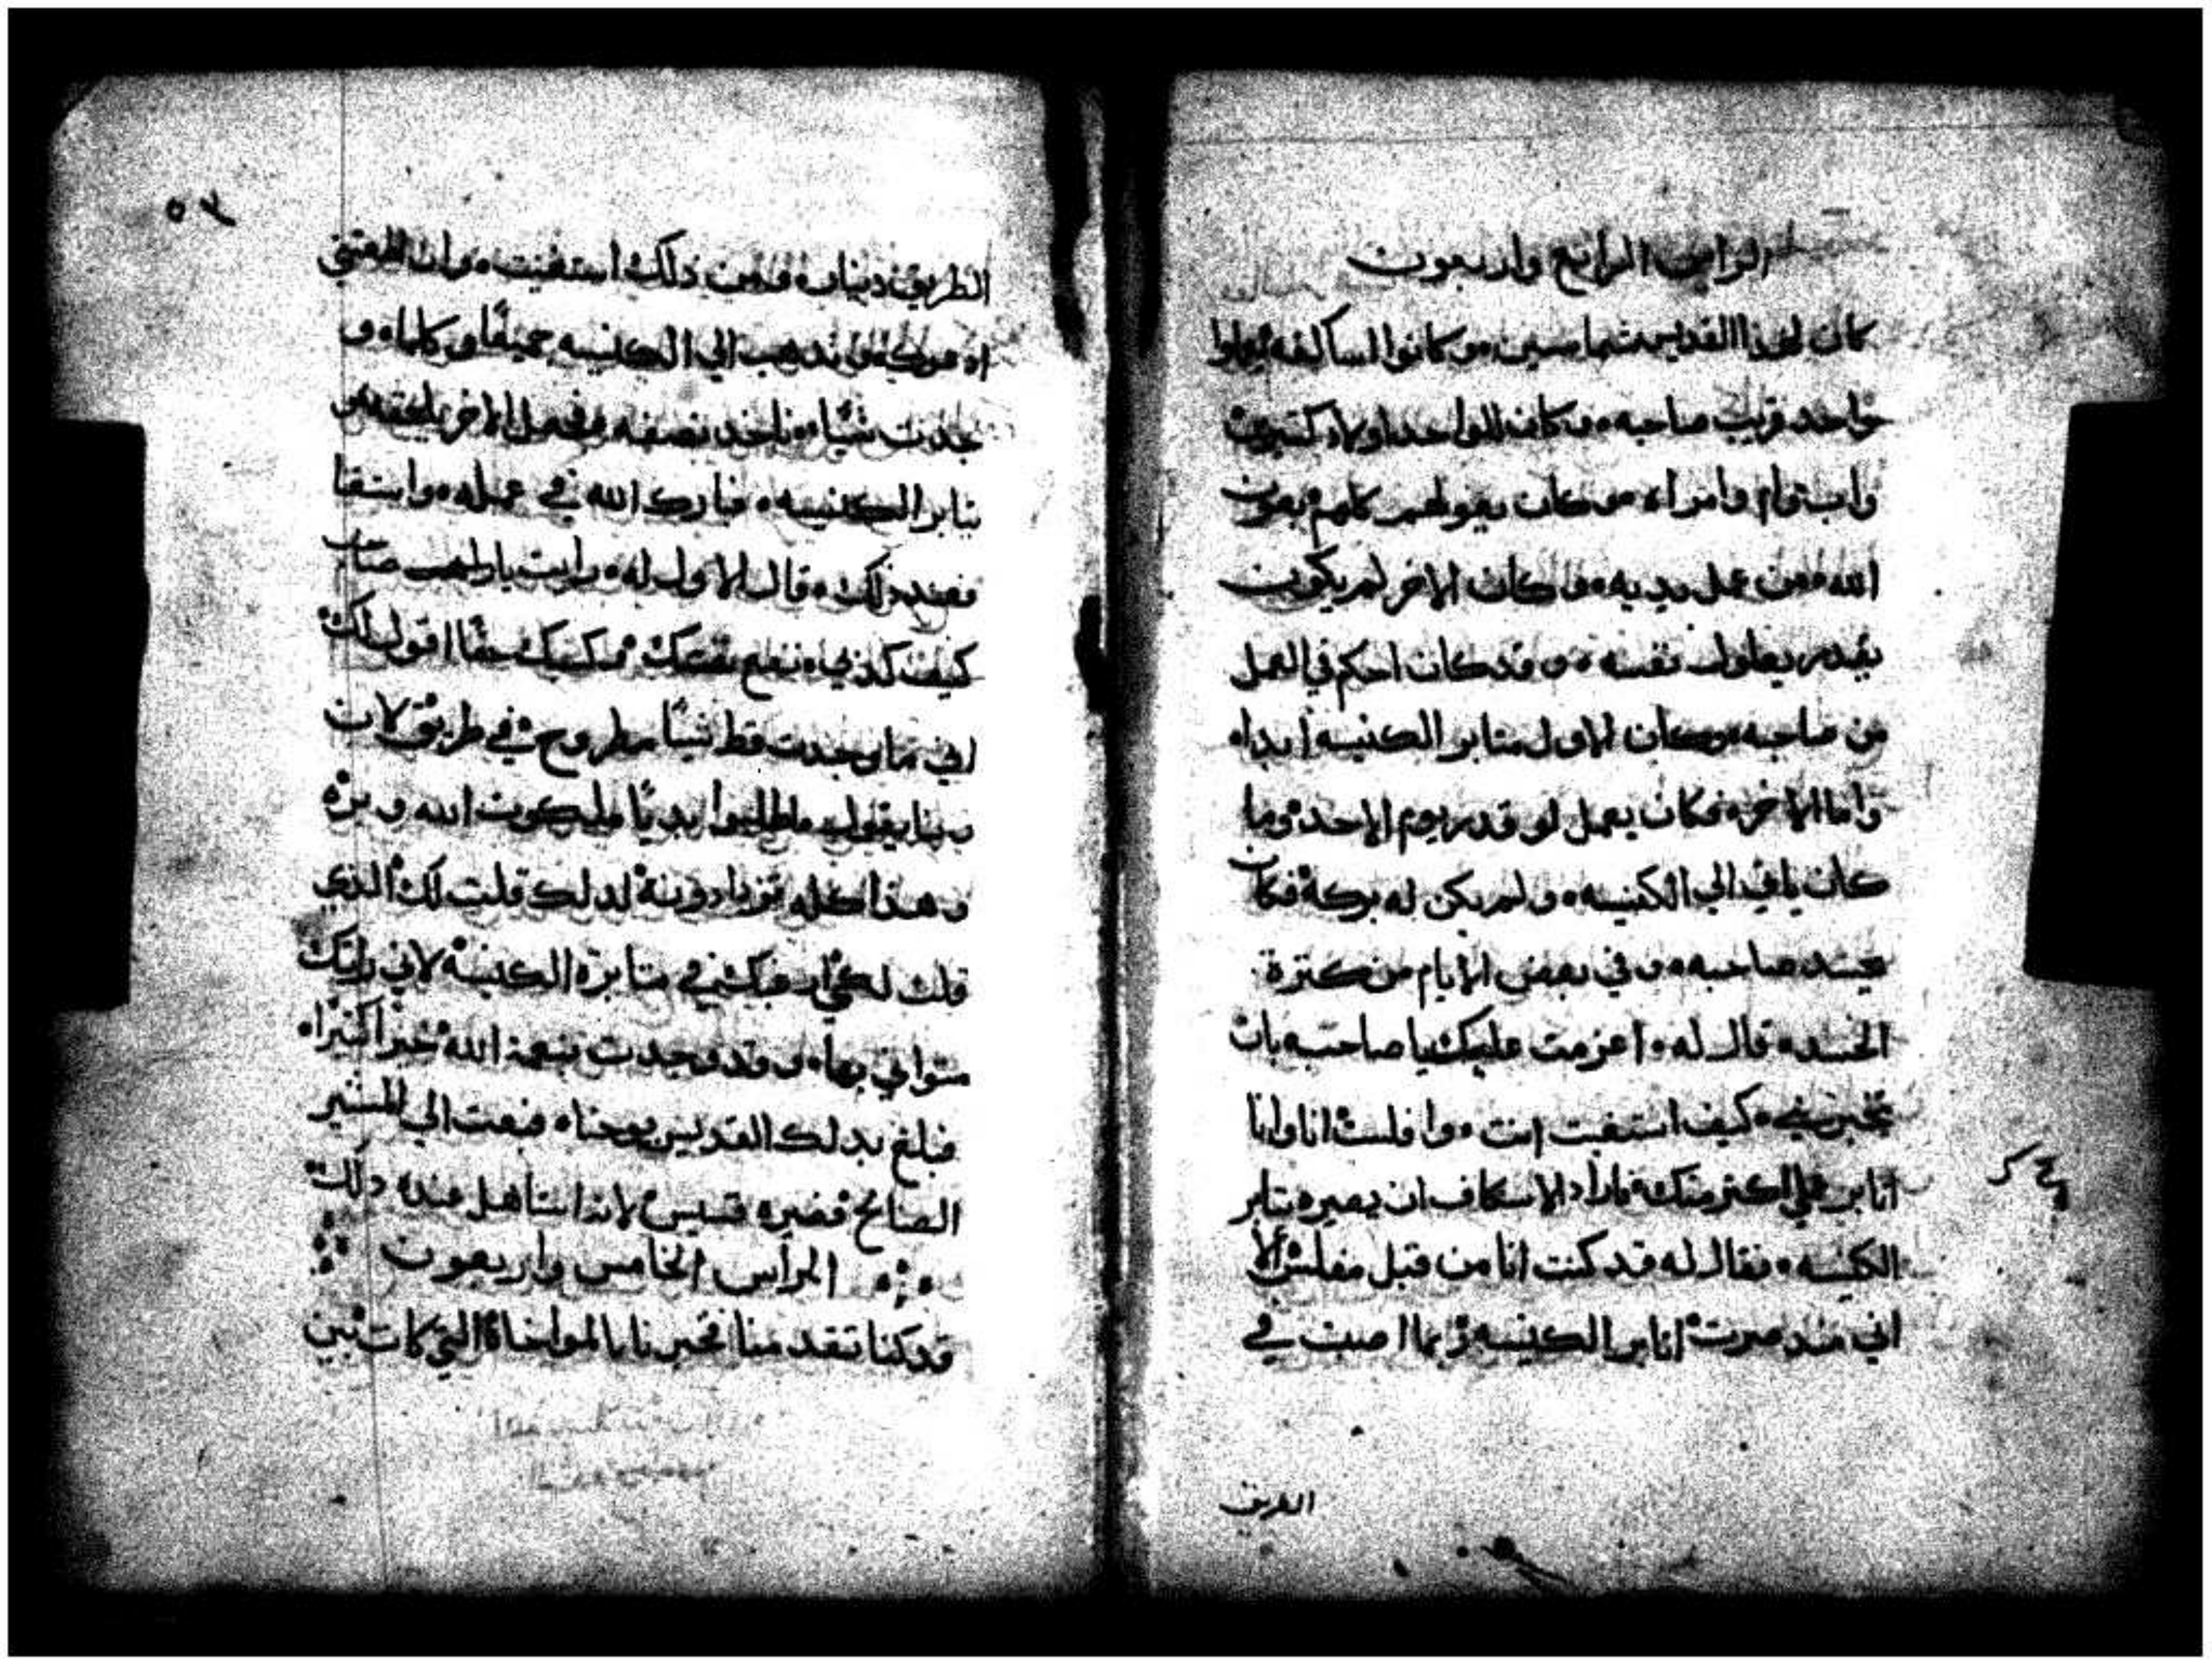 الراس الرابع واربعون
كان لهذا القديس شماسين، وكانوا اساكفه يعملوا
واحد قريب صاحبه، وكان للواحد اولاد كتيرين
واب وام وامراه، وكان يعولهم كلهم بعون
الله ومن عمل يديه، وكان الاخر لم يكون
يقدر يعاول نفسه، وقد كان احكم في العمل
من صاحبه، وكان الاول متابر الكنيسه ابدا،
واما الاخر، فكان يعمل لو قدر يوم الاحد، وما
كان ياتي الي الكنيسه، ولم يكن له بركة فكان
يحسد صاحبه، وفي بعض الايام من كترة
الحسد، قال له، اعزمت عليك يا صاحبي بان
تخبرني، كيف استغنيت انت، وافلست انا وانا
اتابر علي اكتر منك، فاراد الاسكاف ان يصيره يتابر
الكنيسه، فقال له قد كنت انا من قبل مفلس الا
اني مند صرت اتابر الكنيسه ربما اصبت في
الطريق
٥٣
الطريق دينار، فمن دلك استغنيت، وان اطعتني
نذهب الي الكنيسه جميعًا، وكلما و
جدت شيًا، تاخد نصفه
يتابر الكنيسه، فبارك الله في عمله، واستغنا
فعند ذلك، قال الاول له، رايت يا صاحب
كيف كذبي، نفع حقًا اقول لك
اني ما وجدت قط شيًا مطروح في طريق لان
ربنا يقول، اطلبوا بديًا ملكوت الله وبره
وهذا كله تزدادونه لدلك قلت لك الذي
قلت في متابرة الكنيسة لاني رايتك
متواني بها، وقد وجدت بنعمة الله خيرا كتيرا،
فبلغ بدلك القديس يوحنا، فبعت الي المشير
الصالح فصيره قسيس لانه استاهل عنده دلك
الراس الخامس واربعون
قد كنا تقدمنا نخبرنا بالمواخاة التي كات بين